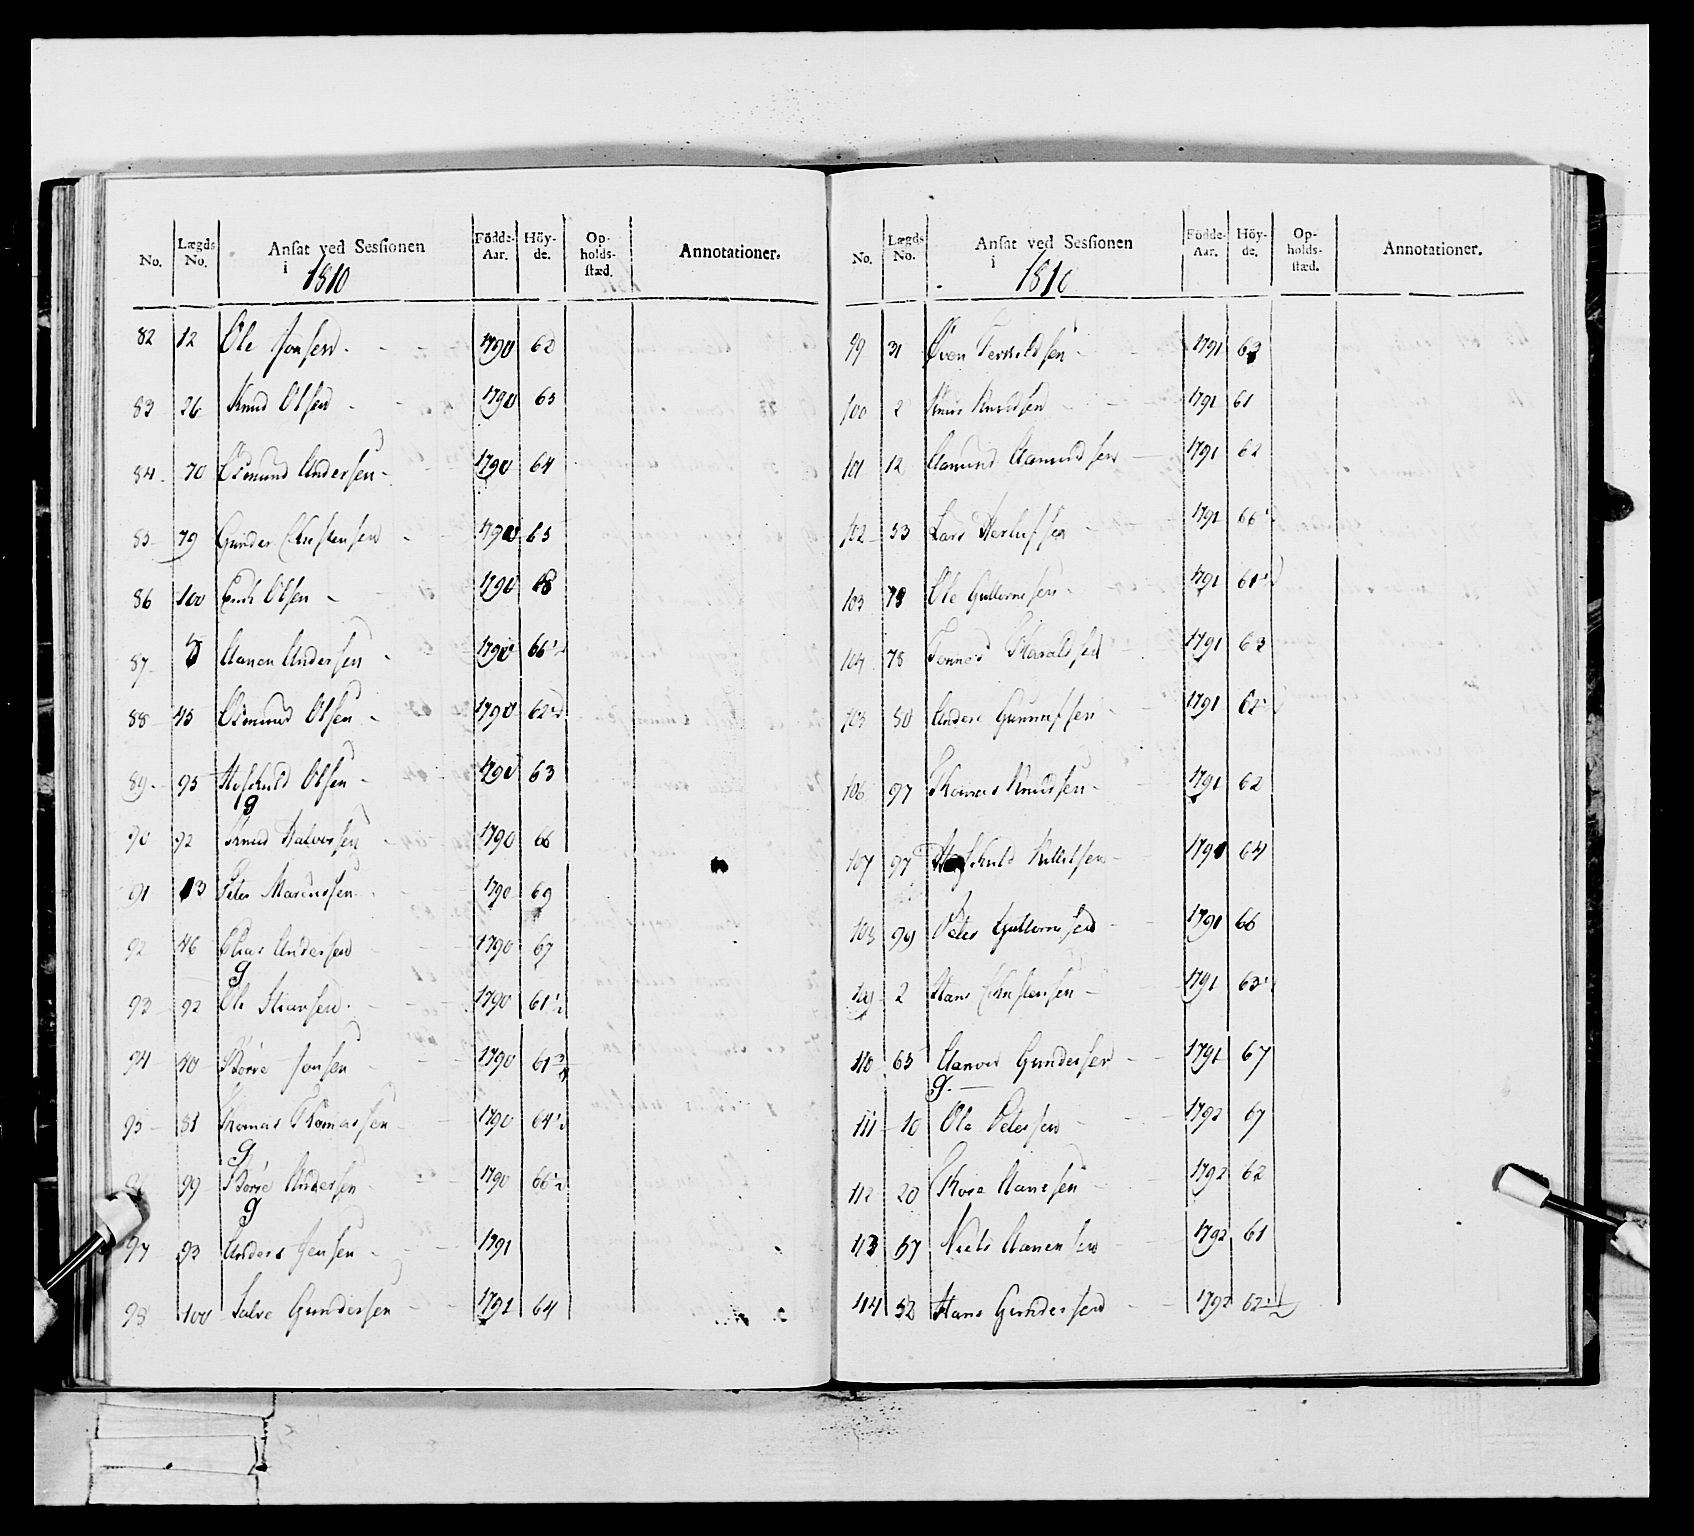 No. Lægds No. Ansat ved Sessionen i 1810 Födde-Aar. Höy-de. Op-holds-stæd. Annotationer.
82 12 Ole Jonsen 1790 62
83 26 Knud Olsen 1790 63
84 70 Osmund Andersen 1790 64
85 79 Gunder Christensen 1790 63
86 100 Erich Olsen 1790
87 Aanen Andersen 1790 66 1/2
88 45 Osmund Olsen 1790 62 1/2
89 95 Olsen 1790 63
g
90 92 Knud Halvorsen 1790 66
91 13 Peter Marcussen 1790 69
92 46 Elias Andersen 1790 67
g
93 92 Ole 1790 61 1/2
94 80 Börre Jonsen 1790 61 3/4
95 81 Thomas Thomassen 1790 64 1/2
g
99 Börre Andersen 1790 66 1/2
g
97 93 Anders Jensen 1791
98 100 Salve Gundersen 1791 64
No. Lægds No. Ansat ved Sessionen i 1810 Födde-Aar. Höy-de. Op-holds-stæd. Annotationer.
99 31 Öven Terkildsen 1791 63
100 2 Knudsen 1791 61
101 12 Aamund Aamundsen 1791 62
102 53 Lars Herlufsen 1791 66
103 78 Ole Guttormsen 1791 61
104 78 Tönnes Haraldsen 1791 63
105 80 Anders Gunnufsen 1791 62
106 97 Thomas Knudsen 1791 62
107 97 1791 64
108 99 Peter Guttormsen 1791 66
109 2 Hans Christensen 1791 63
110 65 Gundersen 1791 67
g.
111 10 Ole Petersen 1792 67
112 20 Aanesen 1792 62
113 57 Niels Aanensen 1792 61
114 52 Hans Gundersen 1792 62 1/2